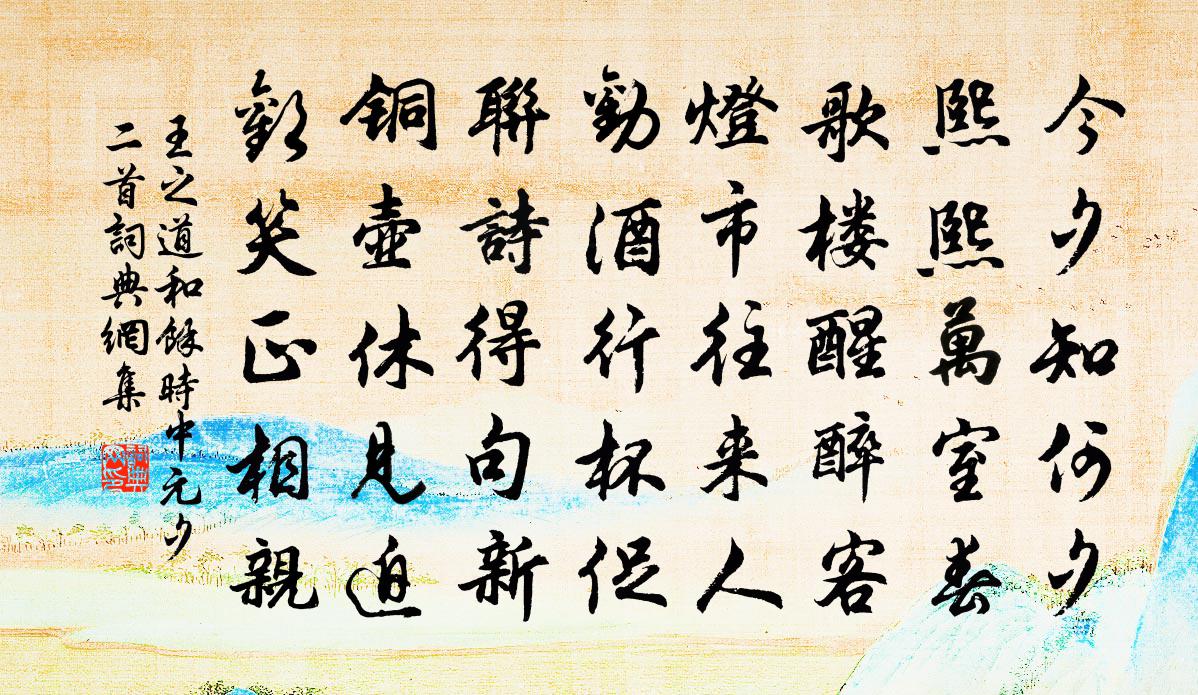 今夕知何夕
熙熙萬室春
歌楼醒醉客
燈市往来人
勸酒行杯促
聯詩得句新
铜壶休見迫
歡笑正相親
王之道和餘時中元夕
二首詞典網集